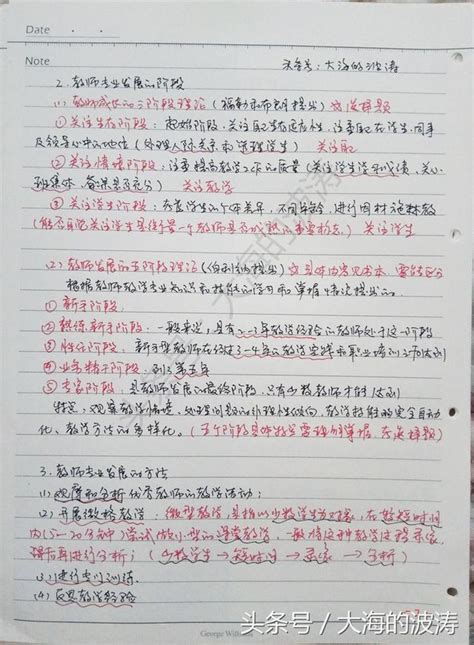 Date
Note 头条号：大海的波涛
2. 教师专业发展的阶段
(1) 教师成长的三阶段理论（福勒和布朗提出）
① 关注生存阶段：起始阶段，关注职生存适应性，注重职在学生、同事
及领导心中的地位（处理人际关系和管理学生） 关注职
② 关注情境阶段：注重提高教学工作的质量（关注学生学习成绩、关心
班集体、备课是否充分） 关注教学
③ 关注学生阶段：考虑学生的个体差异，不同年龄，进行因材施教
（能否自觉关注学生是衡量一个教师是否成熟的重要标志） 关注学生
(2) 教师发展的五阶段理论（伯利纳提出）
根据教师教学专业知识和技能的学习和掌握情况提出的
① 新手阶段
② 熟练新手阶段：一般来说，具有2-3年教学经验的教师处于这一阶段
③ 胜任阶段：新手型教师在经过3-4年的教学实践和职业培训之后达到
④ 业务精干阶段：到第五年
⑤ 专家阶段：是教师发展的最终阶段，只有少数教师才能达到
特点：观察教学情境、处理问题的非理性倾向、教学技能的完全自动
化、教学方法的多样化。
3. 教师专业发展的方法
(1) 观摩和分析优秀教师的教学活动；
(2) 开展微格教学：微型教学，是指以少数学生为对象，在较短时间
内(5-20分钟)尝试做小型的课堂教学，
课后再进行分析；（少数学生→短时间→录像→分析）
(3) 进行专门训练
(4) 反思教学经验
George Will
头条号 / 大海的波涛
大海的波涛